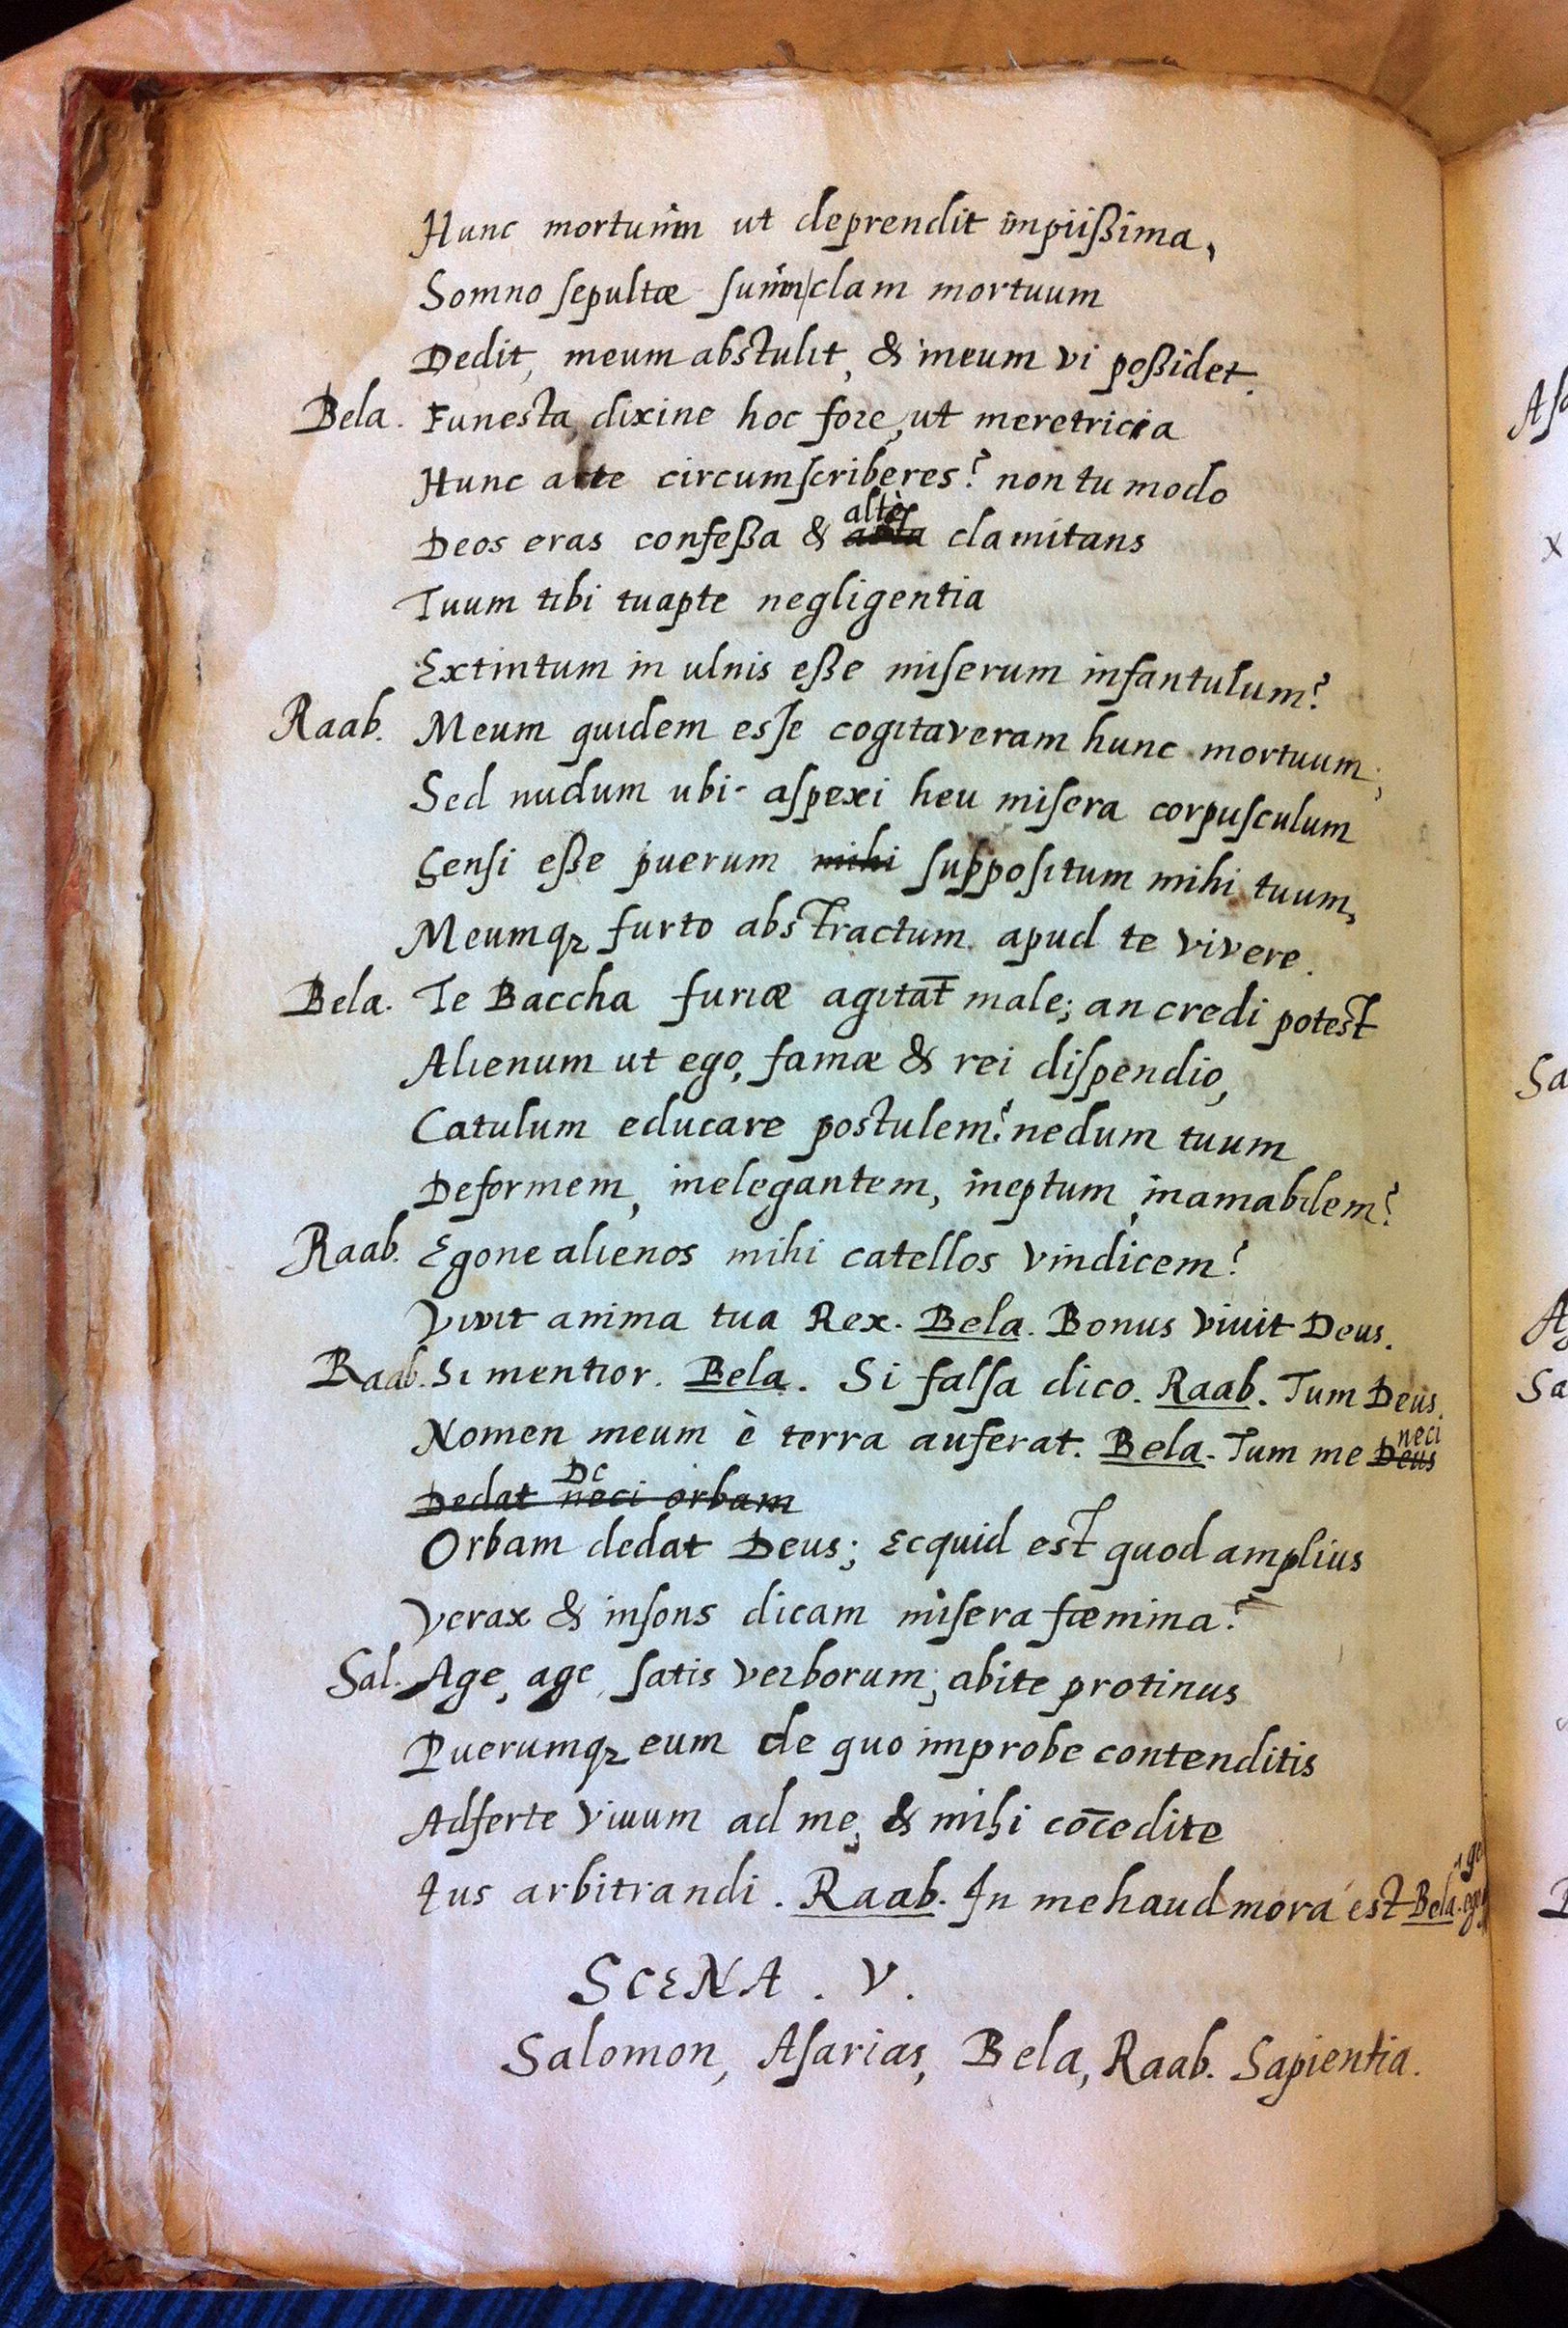 Hunc mortuum ut deprendit impiißima,
Somno sepultæ suum clam mortuum
Dedit, meum abstulit, & meum vi poßidet.
Bela. Funesta, dixine hoc fore, ut meretricia
Hunc arte circumscriberes? non tu modo
altè
Deos eras confeßa & clamitans
Tuum tibi tuapte negligentia
Extintum in ulnis eße miserum infantulum?
Raab. Meum quidem esse cogitaveram hunc mortuum;
Sed nudum ubi aspexi heu misera corpusculum
Sensi eße puerum mihi suppositum mihi tuum,
Meumq₃ furto abstractum apud te vivere.
Bela. Te Baccha furiæ agitāt male; an credi potest
Alienum ut ego, famæ & rei dispendio,
Catulum educare postulem? nedum tuum
Deformem, inelegantem, ineptum, inamabilem?
Raab. Egone alienos mihi catellos vindicem?
Vivit anima tua Rex. Bela. Bonus viuit Deus.
Raab. Si mentior. Bela. Si falsa dico. Raab. Tum Deus
neci
Nomen meum è terra auferat. Bela. Tum me Deus
De
Dedat neci orbam
Orbam dedat Deus; Ecquid est quod amplius
Verax & insons dicam misera fæmina?
Sal. Age, age, satis verborum; abite protinus
Puerumq₃ eum de quo improbe contenditis
Adferte viuum ad me, & mihi cōcedite
Ius arbitrandi. Raab. In me haud mora est Bela.
SCENA. V.
Salomon, Asarias, Bela, Raab. Sapientia.
Sa
Sa